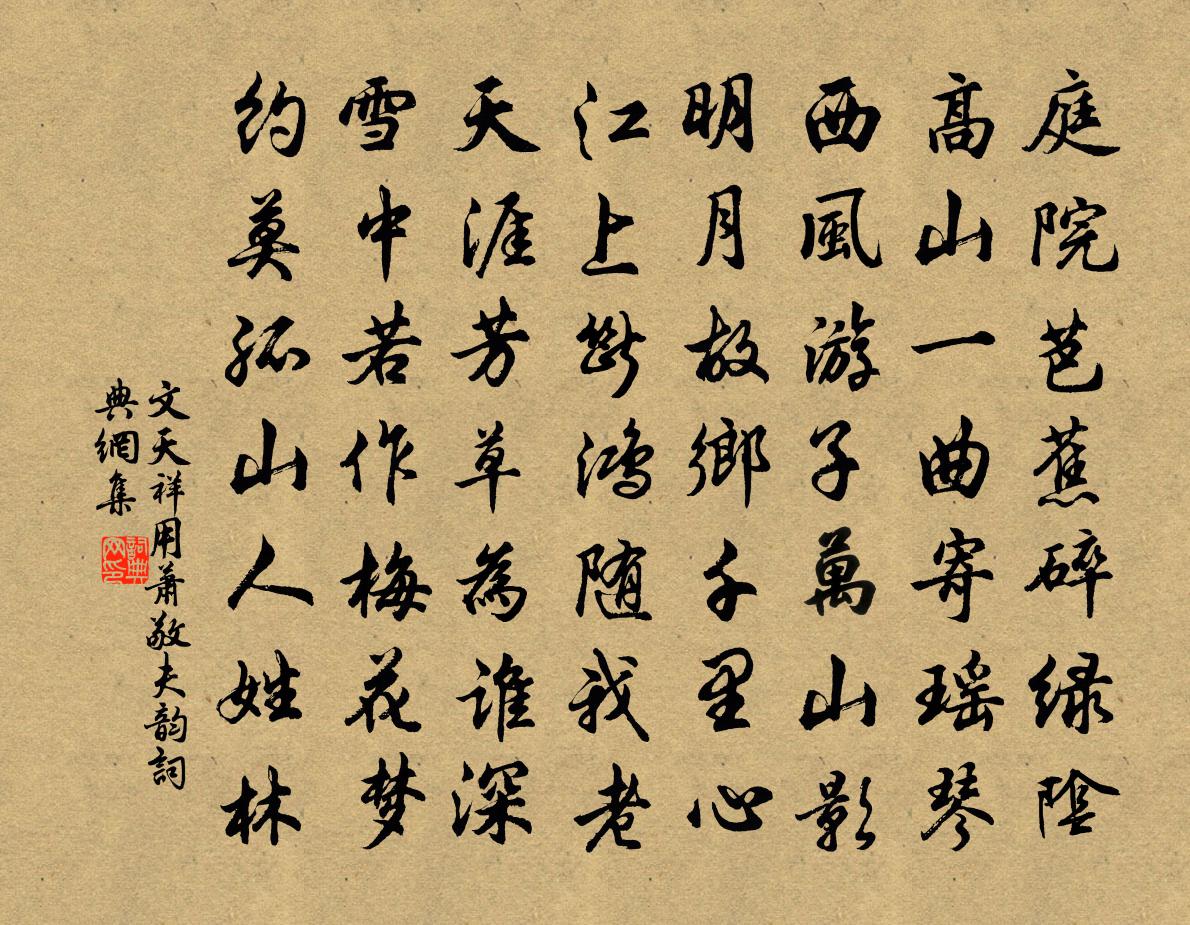 庭院芭蕉碎绿陰
髙山一曲寄瑶琴
西風游子萬山影
明月故鄉千里心
江上斷鴻随我老
天涯芳草為誰深
雪中若作梅花梦
約莫孤山人姓林
文天祥用蕭敬夫韵詞
典網集
詞典
网印